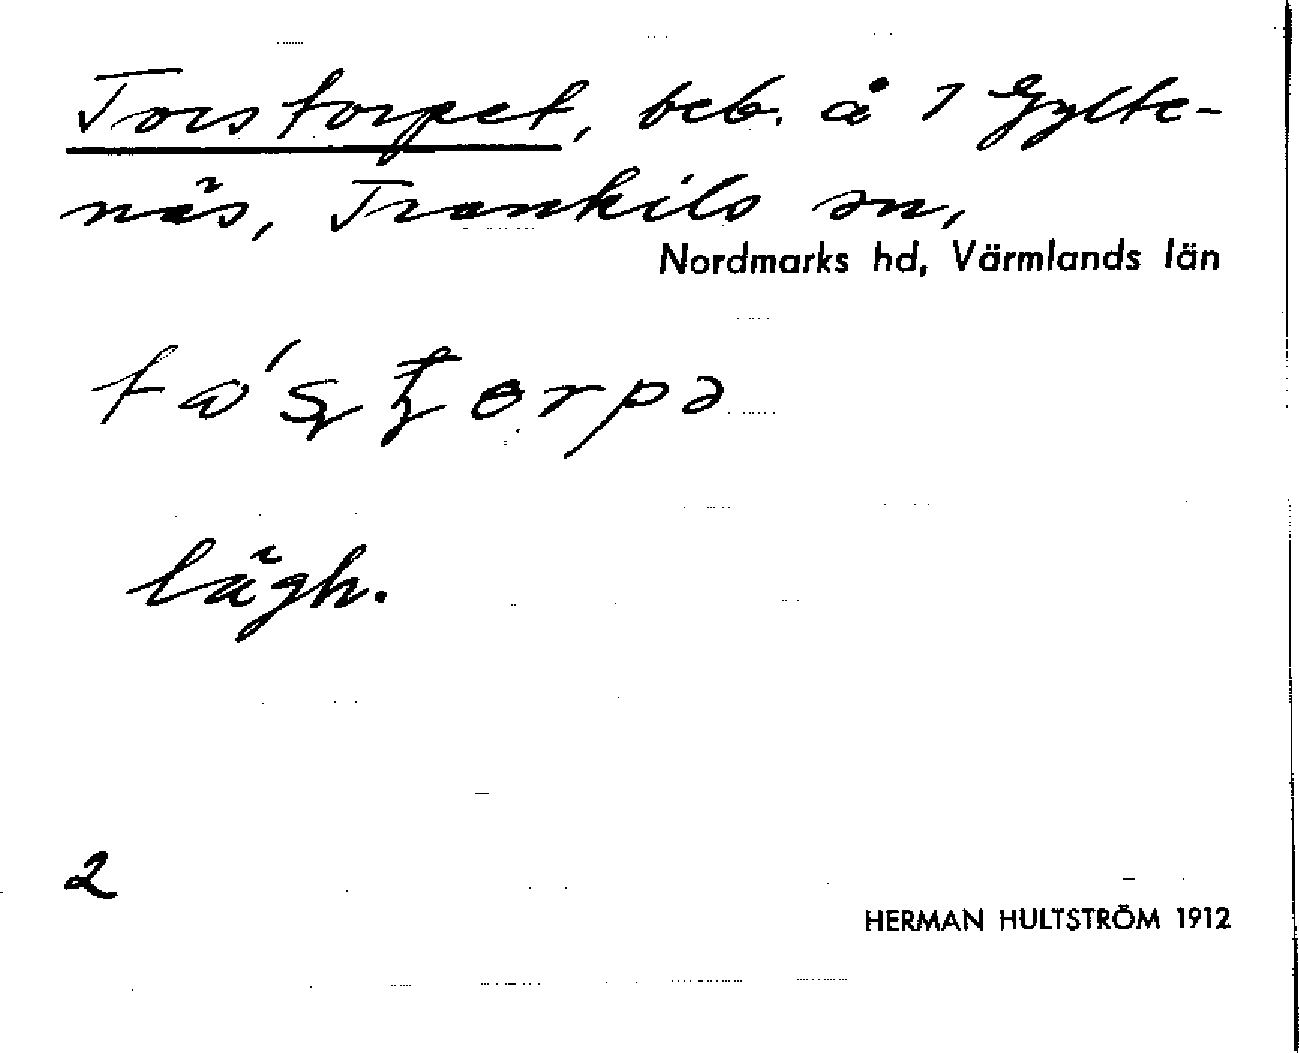 Torstorpet, beb. å 1 Gylte-
näs, Trankils sn,
Nordmarks hd, Värmlands län
lägh.
2
HERMAN HULTSTRÖM 1912